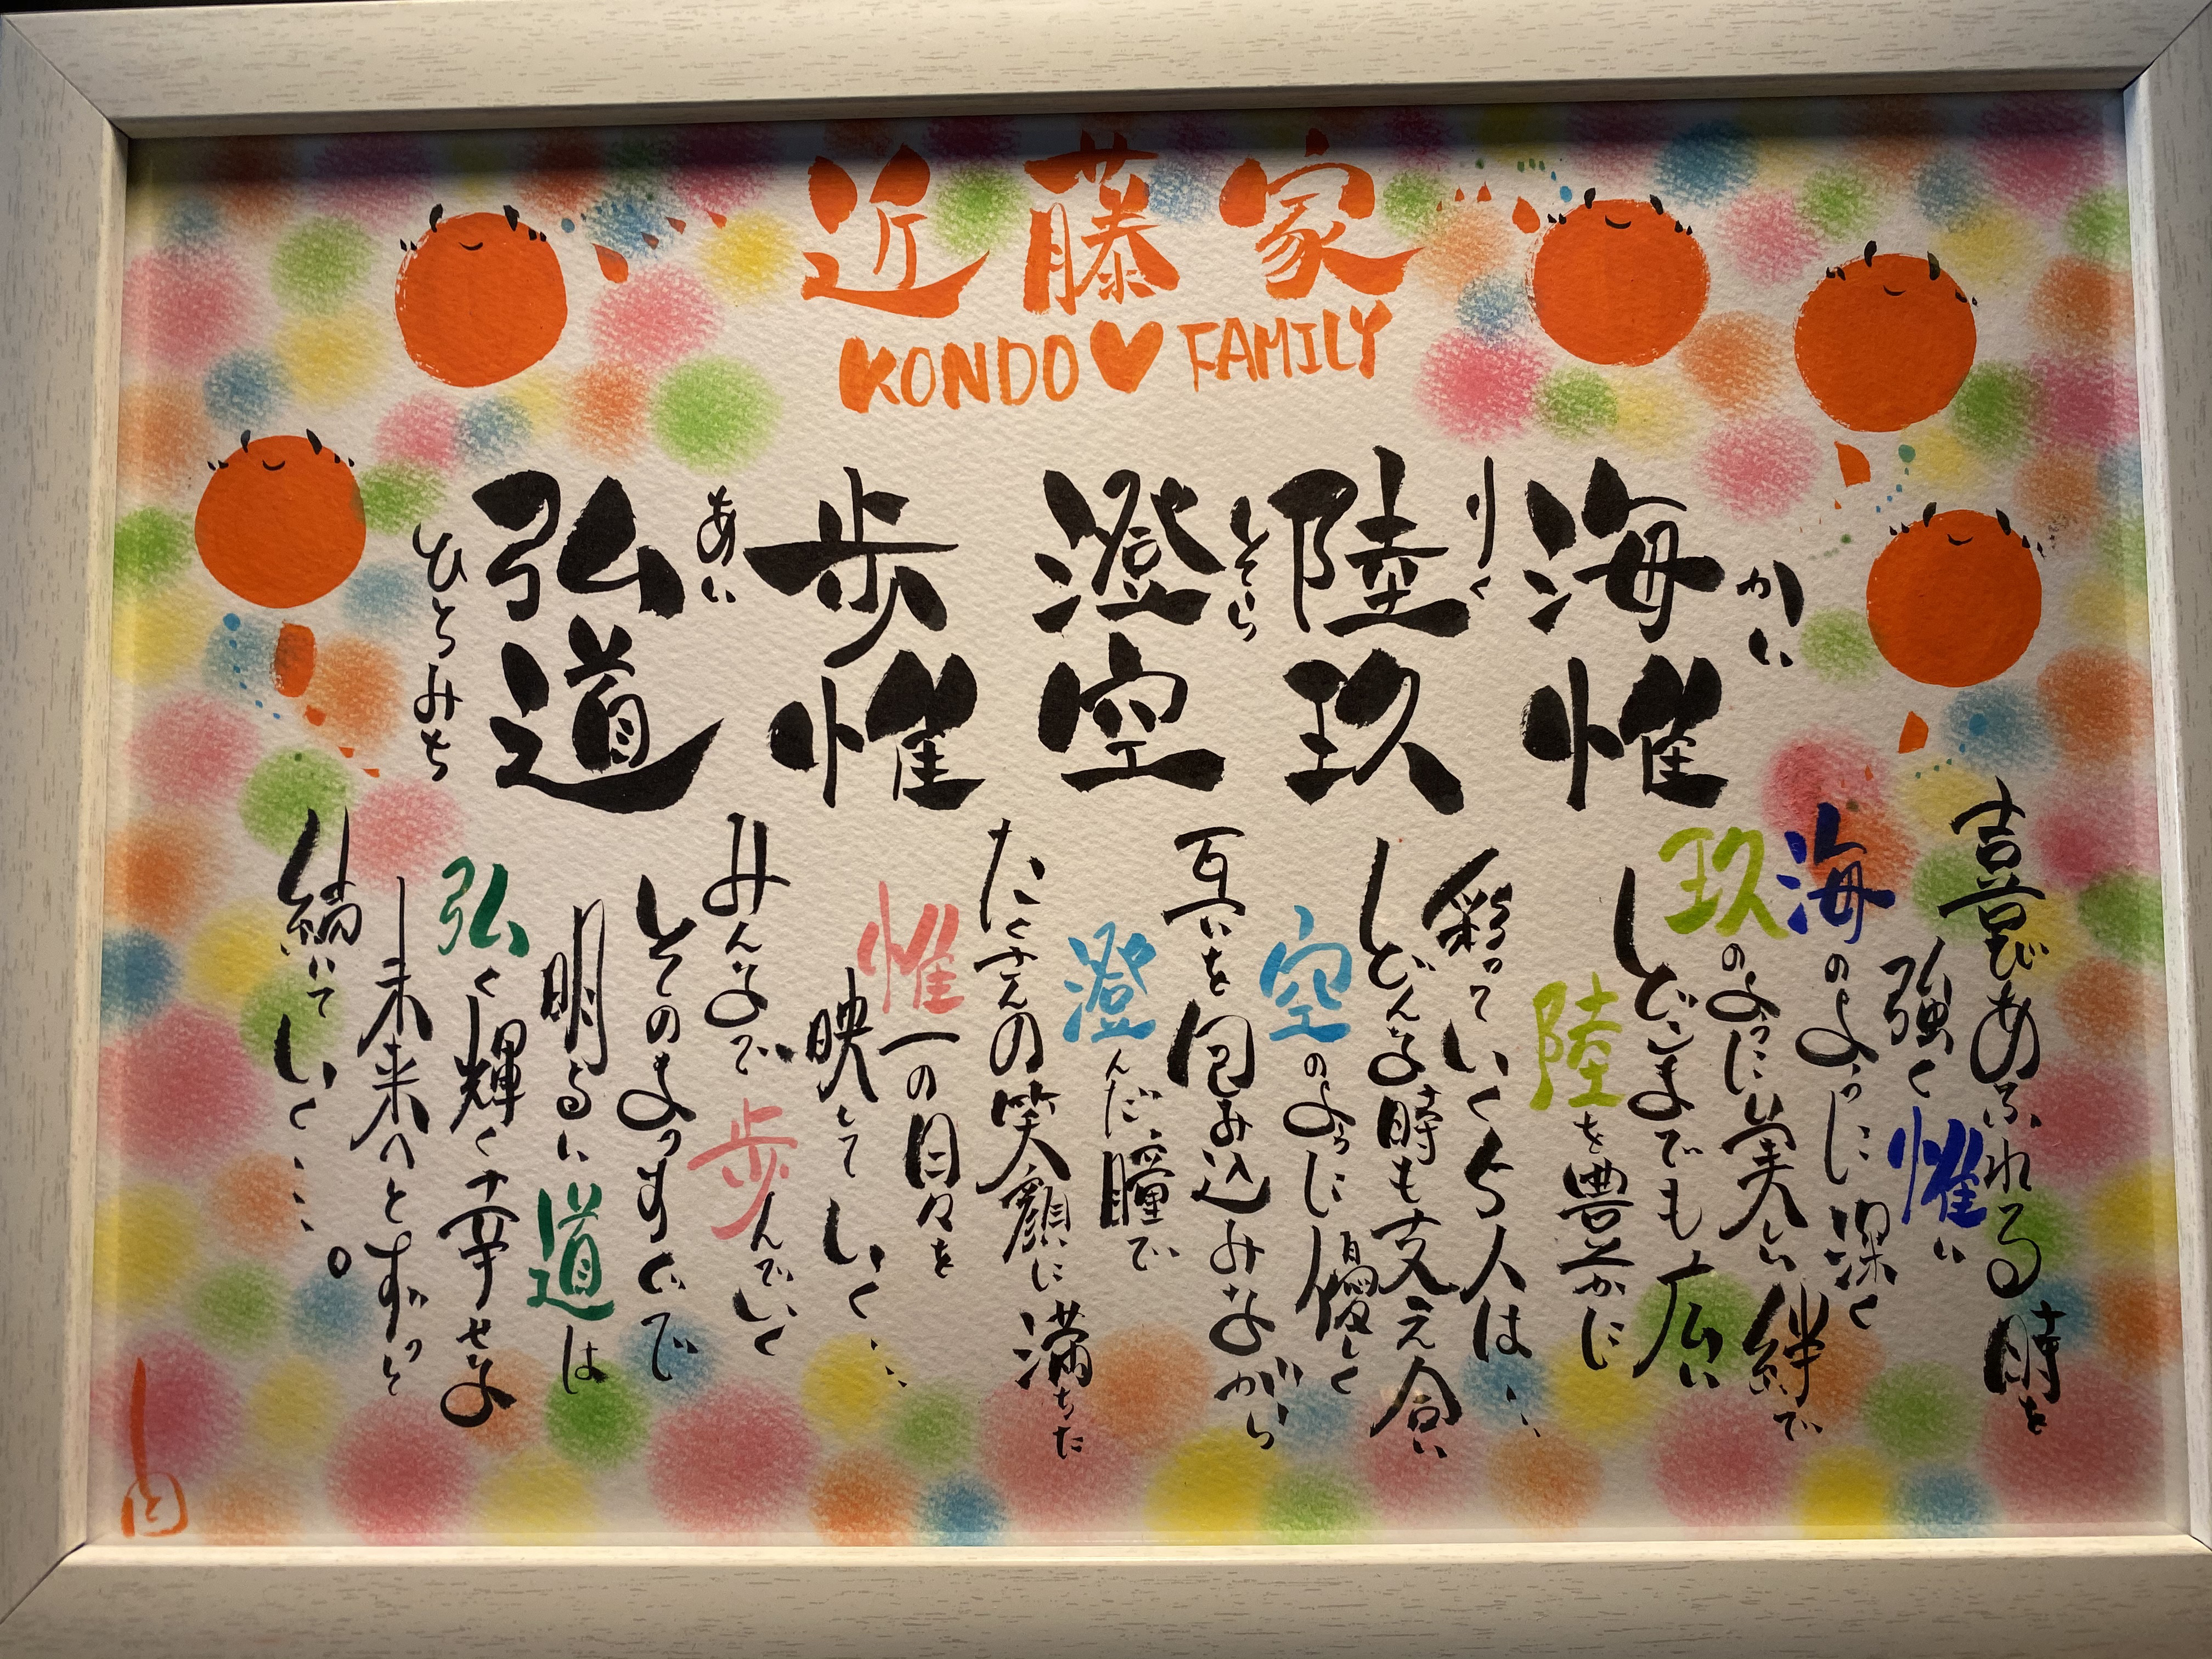 近藤家
KONDO♥FAMILY
海惟
かい
陸玖
りく
澄空
そら
歩惟
あい
弘道
ひろみち
喜びあふれる時を
強く惟い
海のように深く
玖のように美しい絆で
どこまでも広い
陸を豊かに
彩っていく5人は…
どんな時も支え合い
空のように優しく
互いを包み込みながら
澄んだ瞳で
たくさんの笑顔に満ちた
惟一の日々を
映していく…
みんなで歩んでいく
そのまっすぐで
明るい道は
弘く輝く幸せな
未来へとずっと
続いていく…。